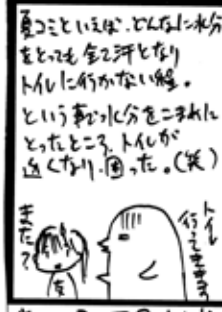 夏コミといえば、どんなに水分
をとっても全て汗となり
トイレに行かない編。
という事で水分をこまめに
とったところ、トイレが
近くなり、困った。(笑)
トイレ
行ってきます
また?